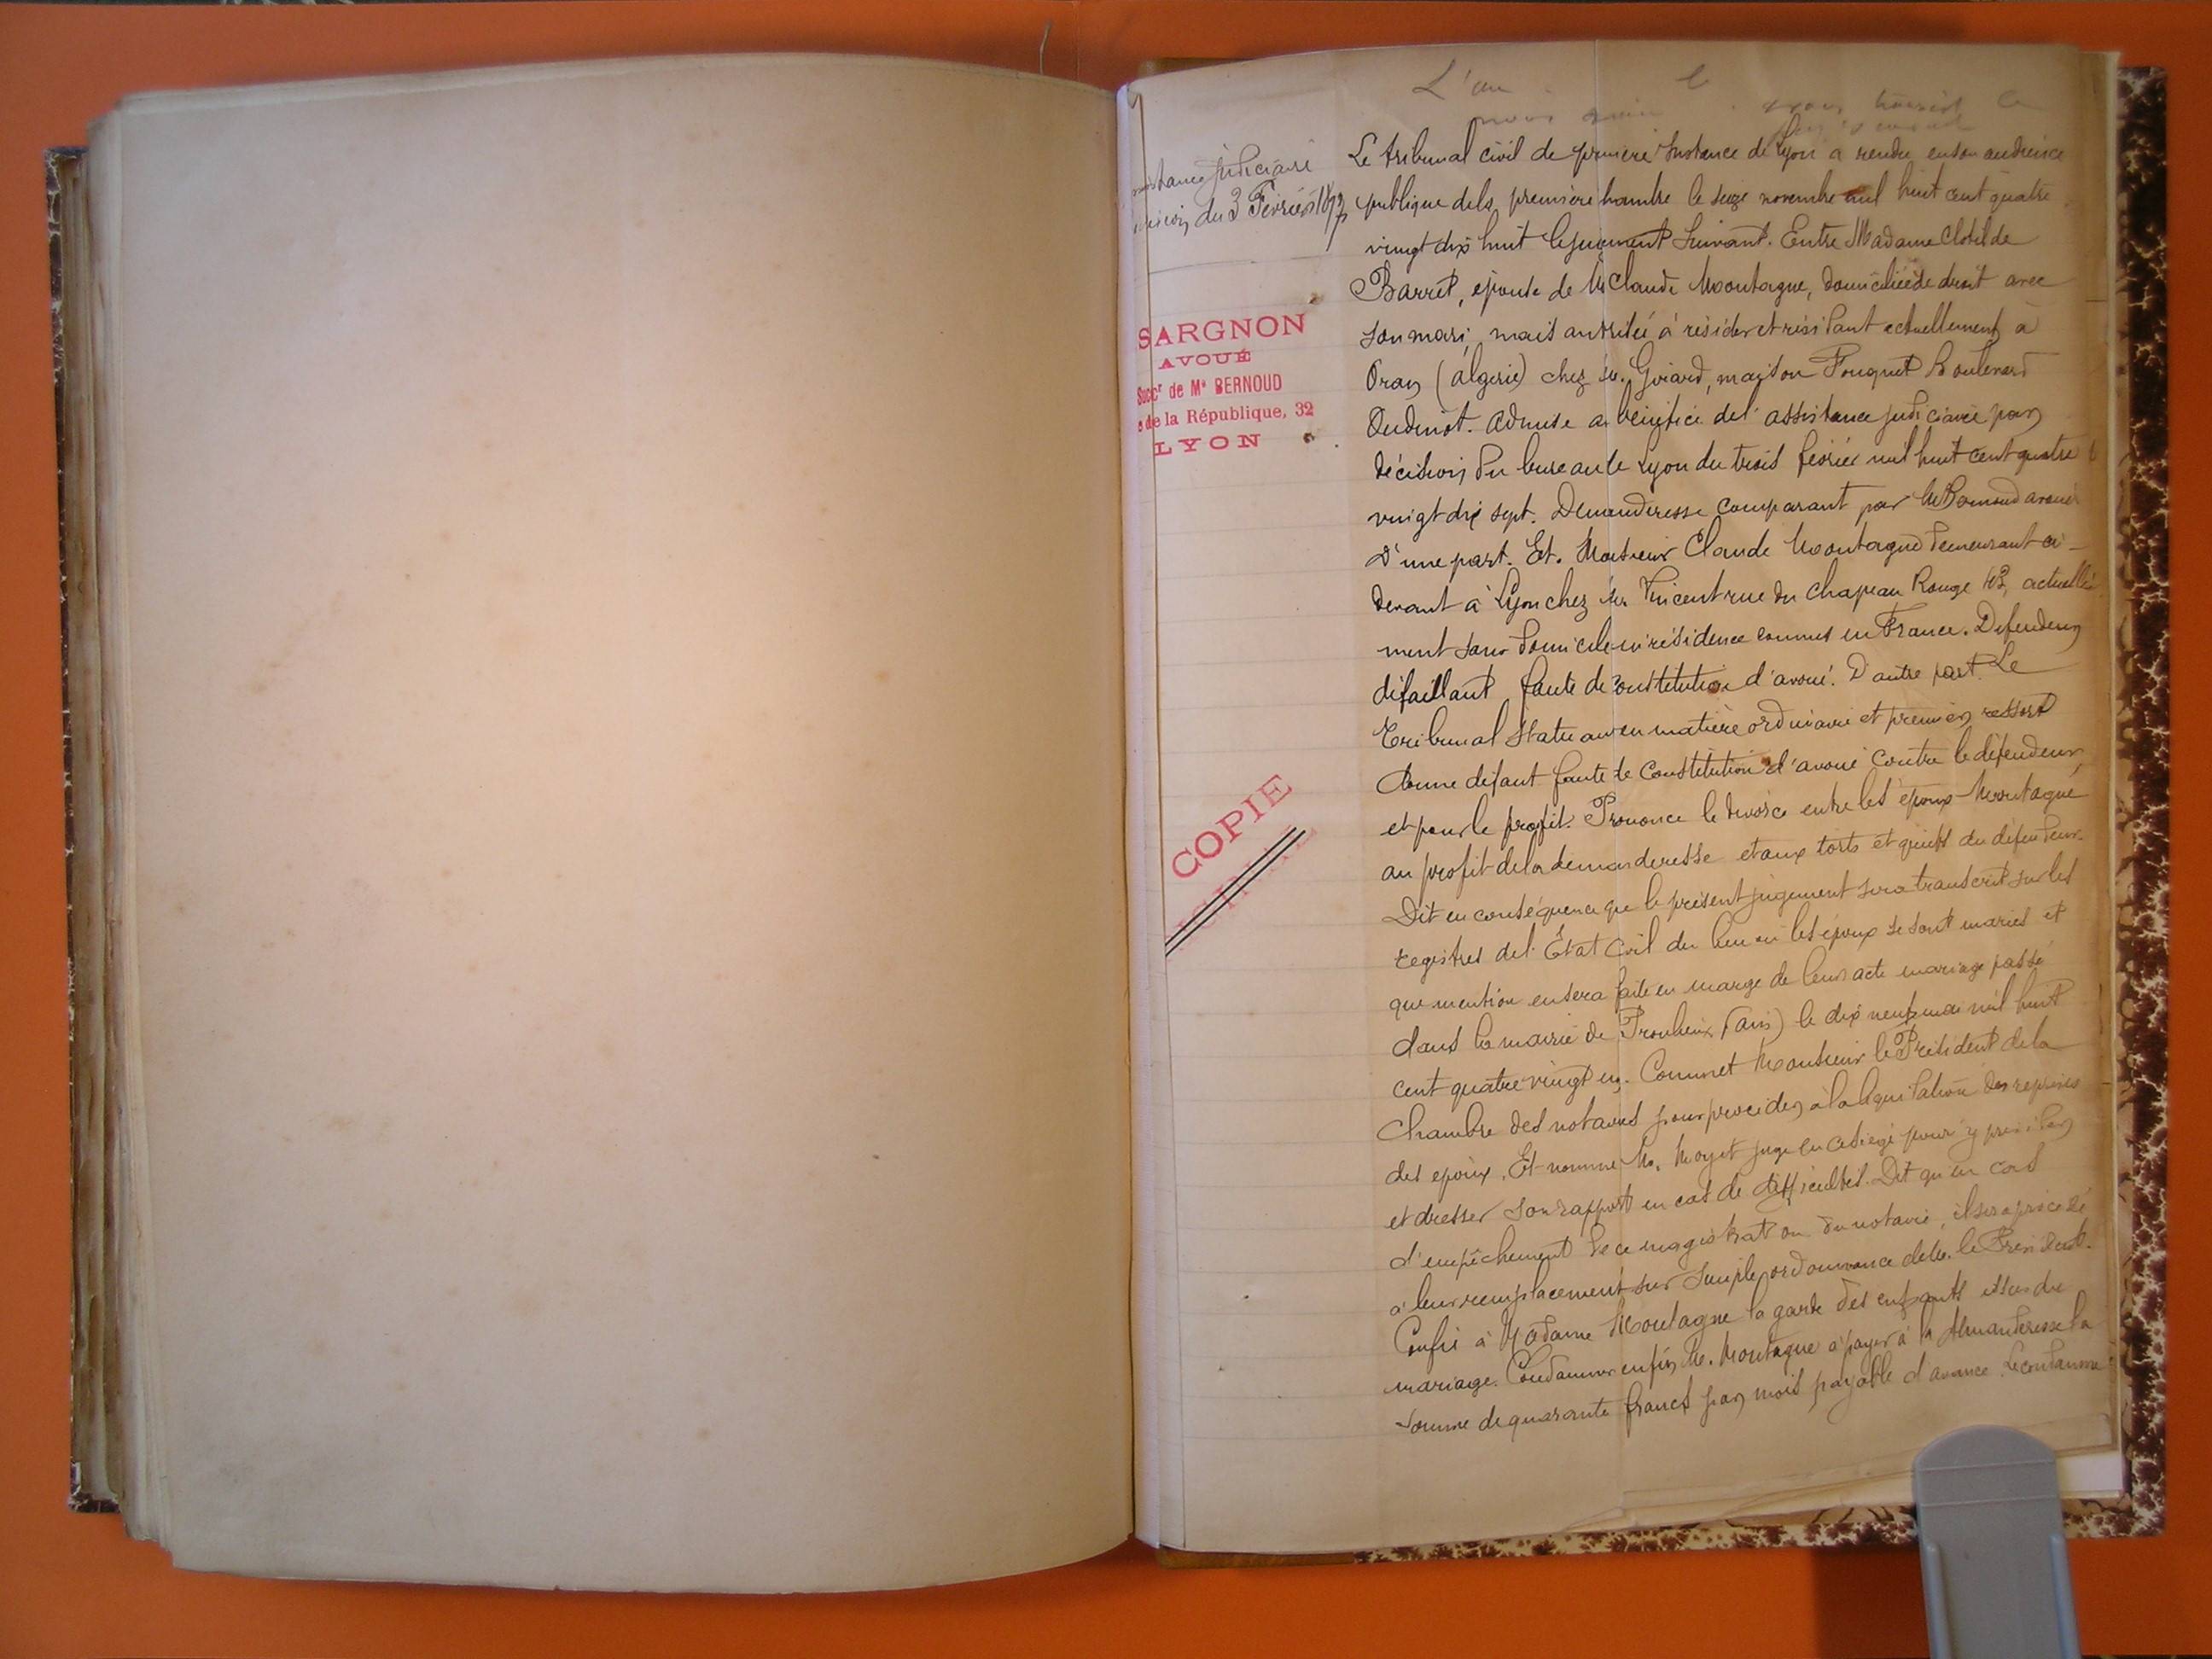 L'an le
Assistance judiciaire
décision du 3 Février 1897
SARGNON
AVOUÉ
Succr de Me BERNOUD
de la République, 32
LYON
COPIE
Le tribunal civil de première Instance de Lyon a rendu en son audience
publique de la première chambre le seize novembre mil huit cent quatre
vingt dix huit le jugement suivant. Entre Madame Clotilde
Barret, épouse de M Claude Montagne, domiciliée de droit avec
son mari, mais autorisée à résider et résidant actuellement à
Oran (Algérie) chez M. Giriard, maison Fouquet Boulevard
Oudinot. Admise au bénéfice de l'assistance judiciaire par
décision du bureau de Lyon du trois février mil huit cent quatre
vingt dix sept. Demanderesse comparant par Me Bernoud avoué
D'une part. Et. Monsieur Claude Montagne demeurant ci-
devant à Lyon chez M. Vincent rue du Chapeau Rouge actuelle
ment sans domicile ni résidence connus en France. Défendeur
défaillant faute de constitution d'avoué. D'autre part. Le
Tribunal statuant en matière ordinaire et premier ressort
Donne défaut faute de Constitution d'avoué contre le défendeur,
et pour le profit. Prononce le divorce entre les époux Montagne
au profit de la demanderesse et aux torts et griefs du défendeur.
Dit en conséquence que le présent jugement sera transcrit sur les
registres de l'État Civil du lieu où les époux se sont mariés et
que mention en sera faite en marge de leur acte mariage passé
dans la mairie de (Ain) le dix neuf mai mil huit
cent quatre vingt un. Commet Monsieur le Président de la
Chambre des notaires pour procéder à la liquidation des reprises
des époux. Et nomme M. Moyet juge en ce siège pour y présider
et dresser son rapport en cas de difficultés. Dit qu'en cas
d'empêchement de ce magistrat ou du notaire, il sera procédé
à leur remplacement sur simple ordonnance de M. le Président.
Confie à Madame Montagne la garde des enfants issus du
mariage. Condamne enfin M. Montagne à payer à la demanderesse la
somme de quarante francs par mois payable d'avance. Le condamne